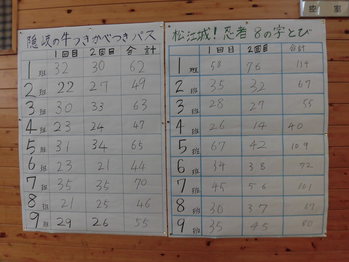 隠岐の牛つきかべつきパス
1回目 2回目 合計
1班 32 30 62
2班 22 27 49
3班 30 33 63
4班 23 24 47
5班 31 34 65
6班 23 21 44
7班 35 35 70
8班 21 25 46
9班 29 26 55
松江城!忍者8の字とび
1回目 2回目 合計
1班 58 76
2班 35 32 67
3班 28 27 55
4班 26 14 40
5班 67 42 109
6班 34 38 72
7班 45 56 101
8班 30 37 67
9班 35 45 80